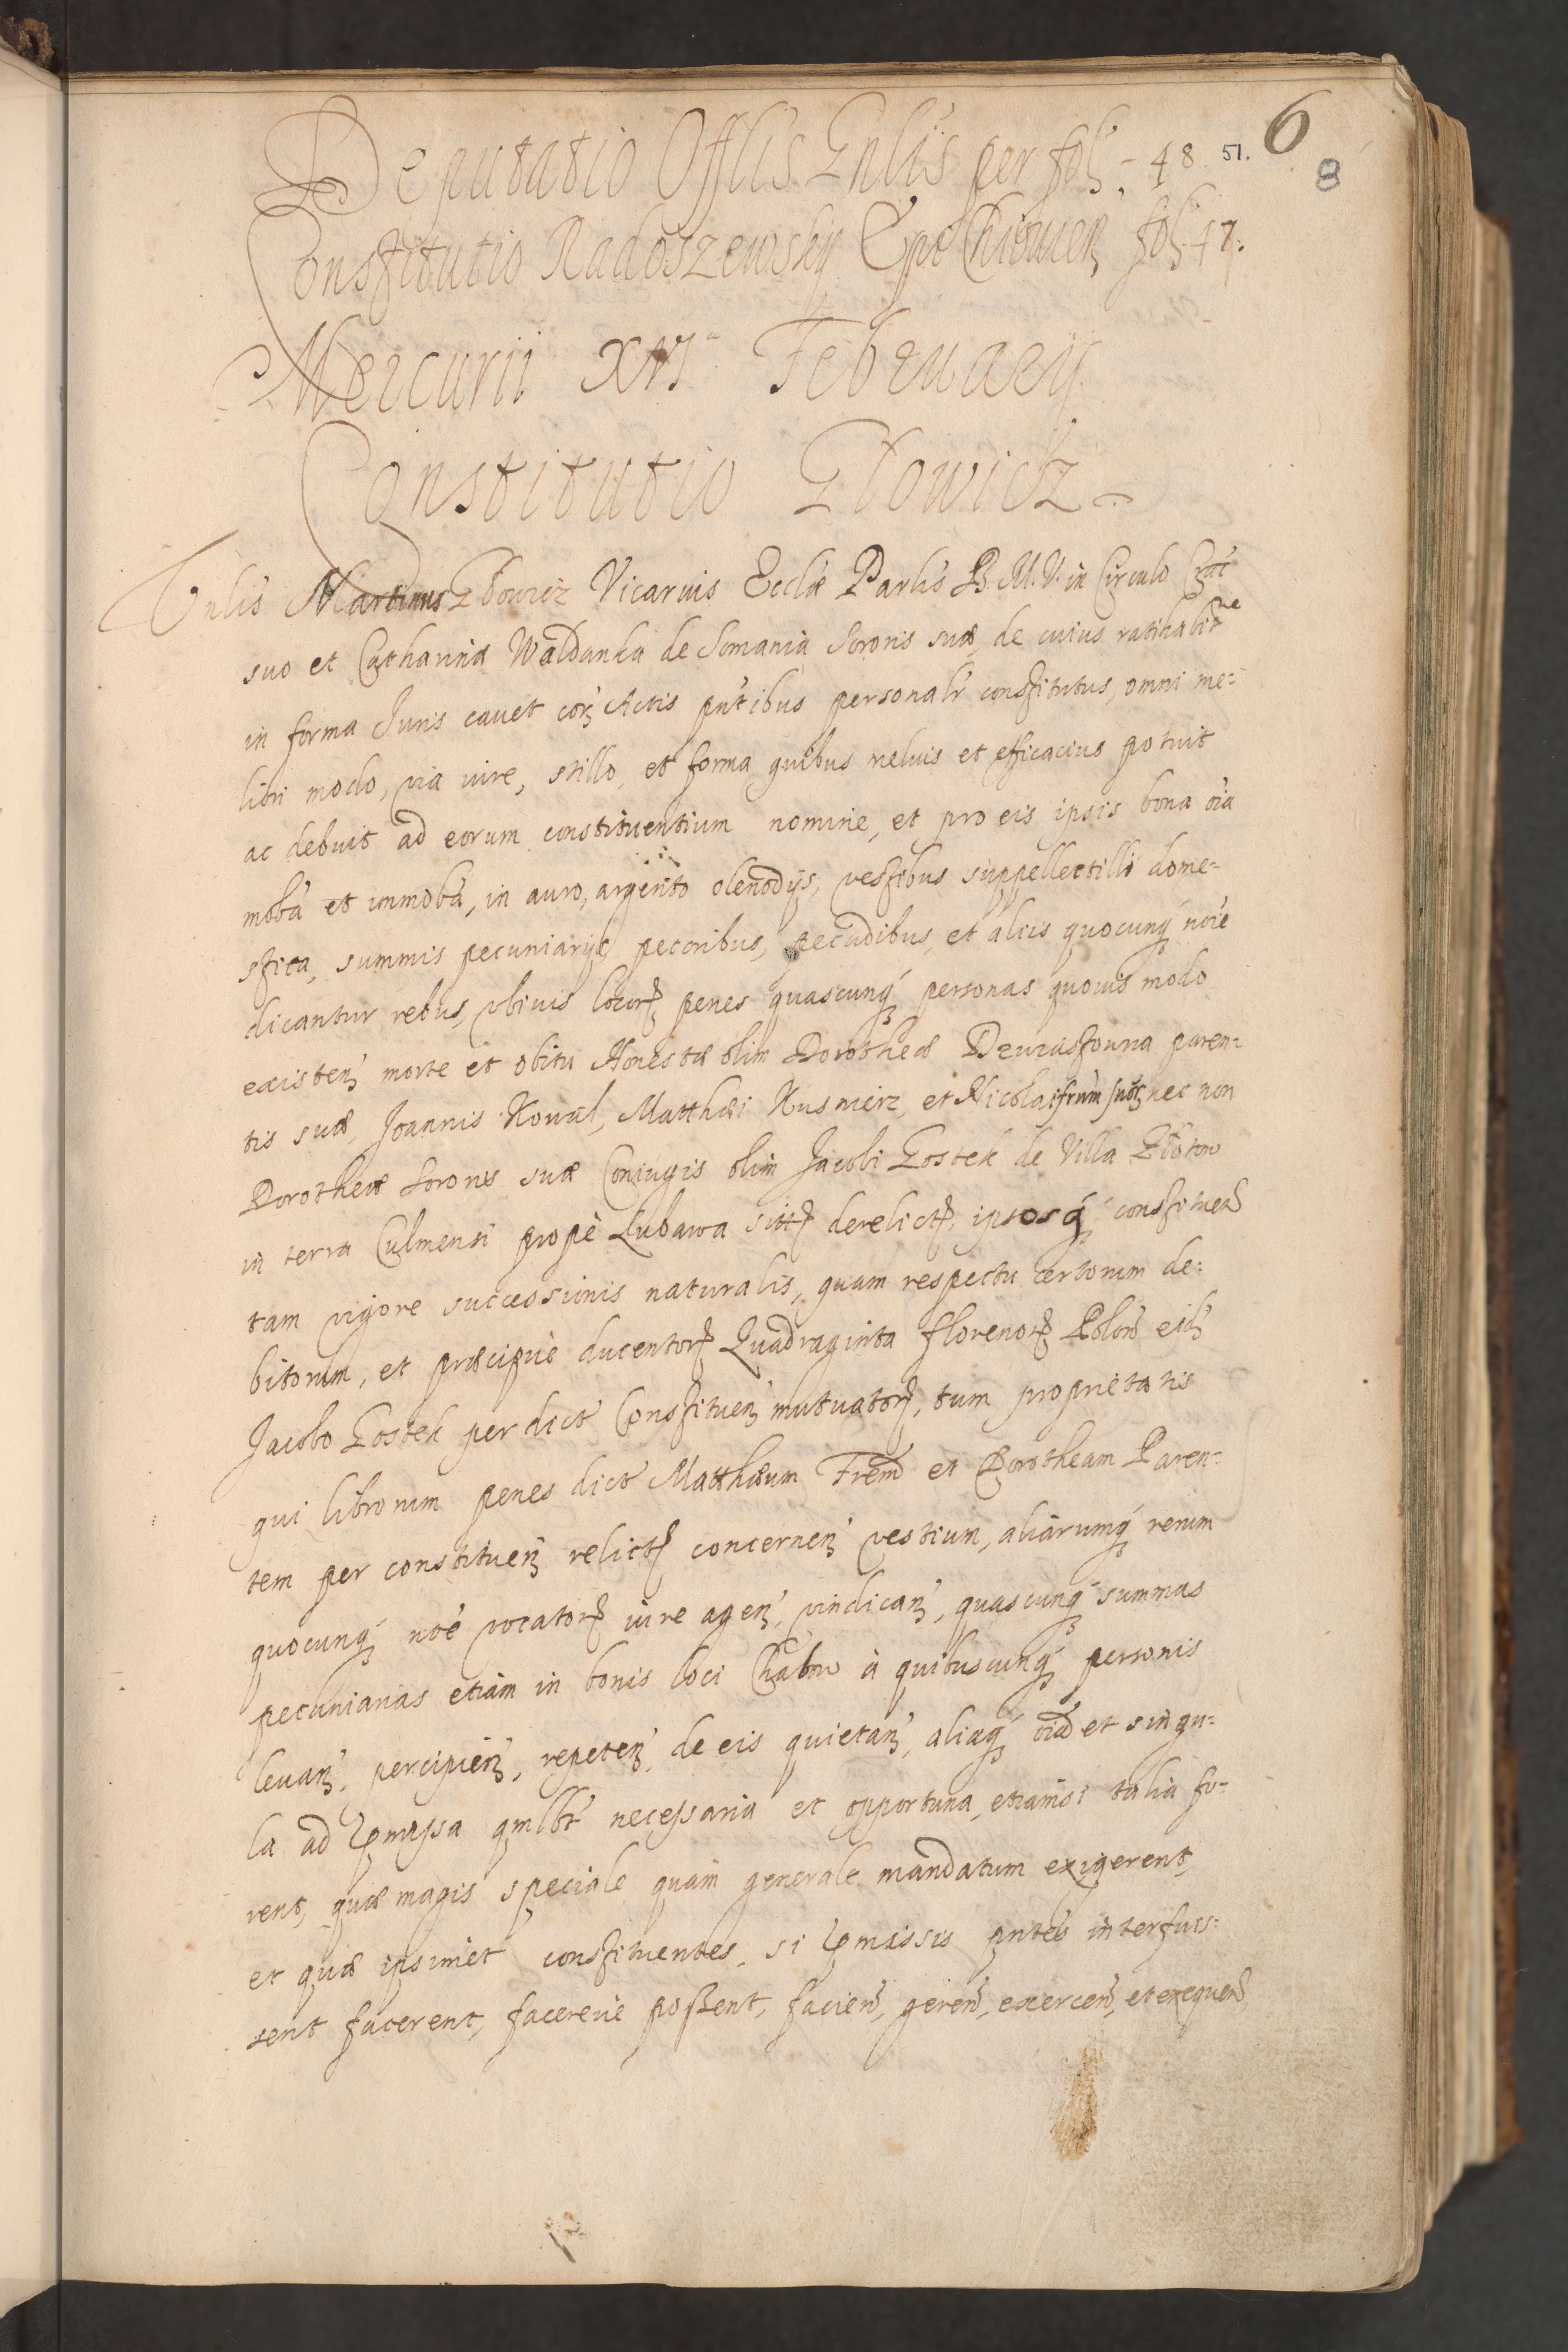 6
8
Deputatio Offlis Gnlis per fol. 48. 51.
Constitutio Radoszewsky Epi Chiouien fol. 47.
Mercurii XVI Februarij
Constitutio Glowicz
Vnlis Martinus Glowicz Vicarius Eccliæ Parlis B. M. V. in Circulo Crac
suo et Catharinæ Waldanka de Somania Sororis suæ, de cuius ratihabitne
in forma Iuris cauet cor Actis pntibus personalr constitutus, omni me-
liori modo, via iure, stillo, et forma quibus meluis et efficacius potuit
ac debuit ad eorum constituentium nomine, et pro eis ipsis bona oia
mobla et immobla, in auro, argento clenodys, vestibus suppellectilli dome-
stica, summis pecuniarijs pecoribus, pecudibus, et aliis quocunq noie
dicantur rebus, vbiuis locor penes quascunq personas quouis modo
existen morte et obitu Honestæ olim Dorotheæ paren-
tis suæ, Joannis Kowal, Matthæi Kusmierz, et Nicolai frum suor nec non
Dorotheæ Sororis suæ Coniugis olim Jacobi Gostek de Villa
in terra Culmensi propè Lubawa sitt derelict, ipsosq constituen
tam vigore successionis naturalis, quam respectu certorum de-
bitorum, et præcipuè ducentor Quadraginta florenor Polon eid
Jacobo Gostek per dict Constituen mutuator, tum proprietatis
qui librorum penes dict Matthæum Frem et Dorotheam Paren-
tem per constituen relict concernen vestium, aliarumq rerum
quocunq noe vocator iure agen, vindican, quascunq summas
pecuniarias etiam in bonis loci à quibuscunq personis
leuan, percipien, repeten, de eis quietan, aliaq oia et singu-
la ad pmissa qmlbt necessaria et opportuna, etiamsi talia fo-
rent, quæ magis speciale quam generale mandatum exigerent,
et quæ ipsimet constituentes, si pmissis pntes interfuis-
sent facerent, facereue possent, facien, geren, exercen, et exequen